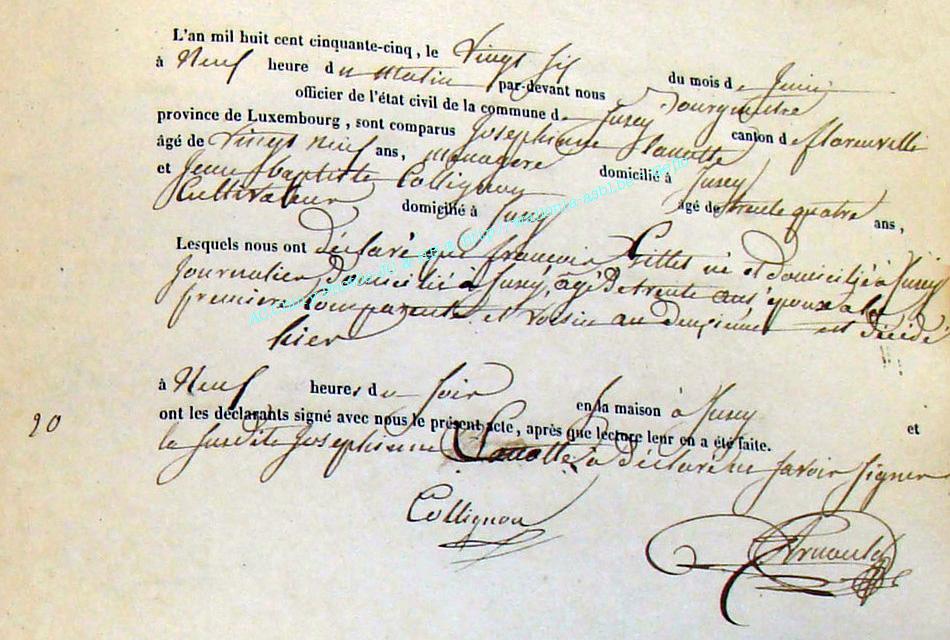 L'an mil huit cent cinquante-cinq, le vingt six du mois de Juin
à Neuf heure du matin par-devant nous Bourgmestre
officier de l'état civil de la commune de Suxy canton de florenville
province de Luxembourg, sont comparus Josephinne
âgé de vingt neuf ans, menagère domicilié à Suxy
et Jean Baptiste Collignon âgé de trente quatre ans,
Cultivateur domicilié à Suxy
Lesquels nous ont déclaré que françois Gilles né et domicilié à Suxy
Journalier domicilié à Suxy, âgé de trente ans époux à la
premiere comparante et voisin au deuxième est décédé
hier
à Neuf heures du soir en sa maison à Suxy et
20
ont les déclarants signé avec nous le présent acte, après que lecture leur en a été faite.
la susdite Josephinne a déclaré ne savoir signer
Collignon